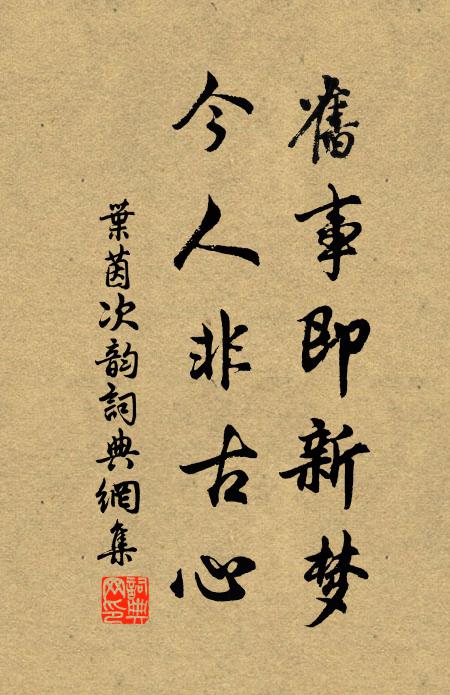 舊事即新梦
今人非古心
葉茵次韵詞典網集
詞典网印